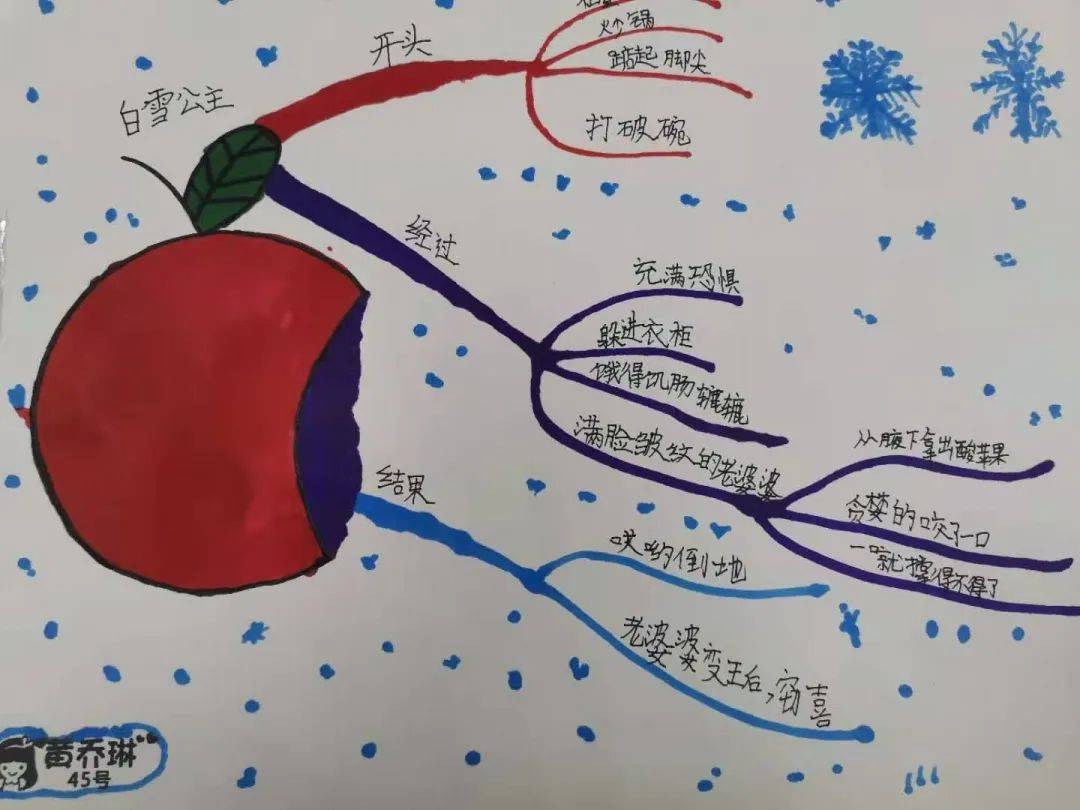 炒锅
踮起脚尖
打破碗
开头
白雪公主
经过
充满恐惧
躲进衣柜
饿得饥肠辘辘
满脸皱纹的老婆婆
从腋下拿出酸苹果
贪婪的咬了一口
结果
哎哟倒地
老婆婆变王后,窃喜
黄乔琳
45号